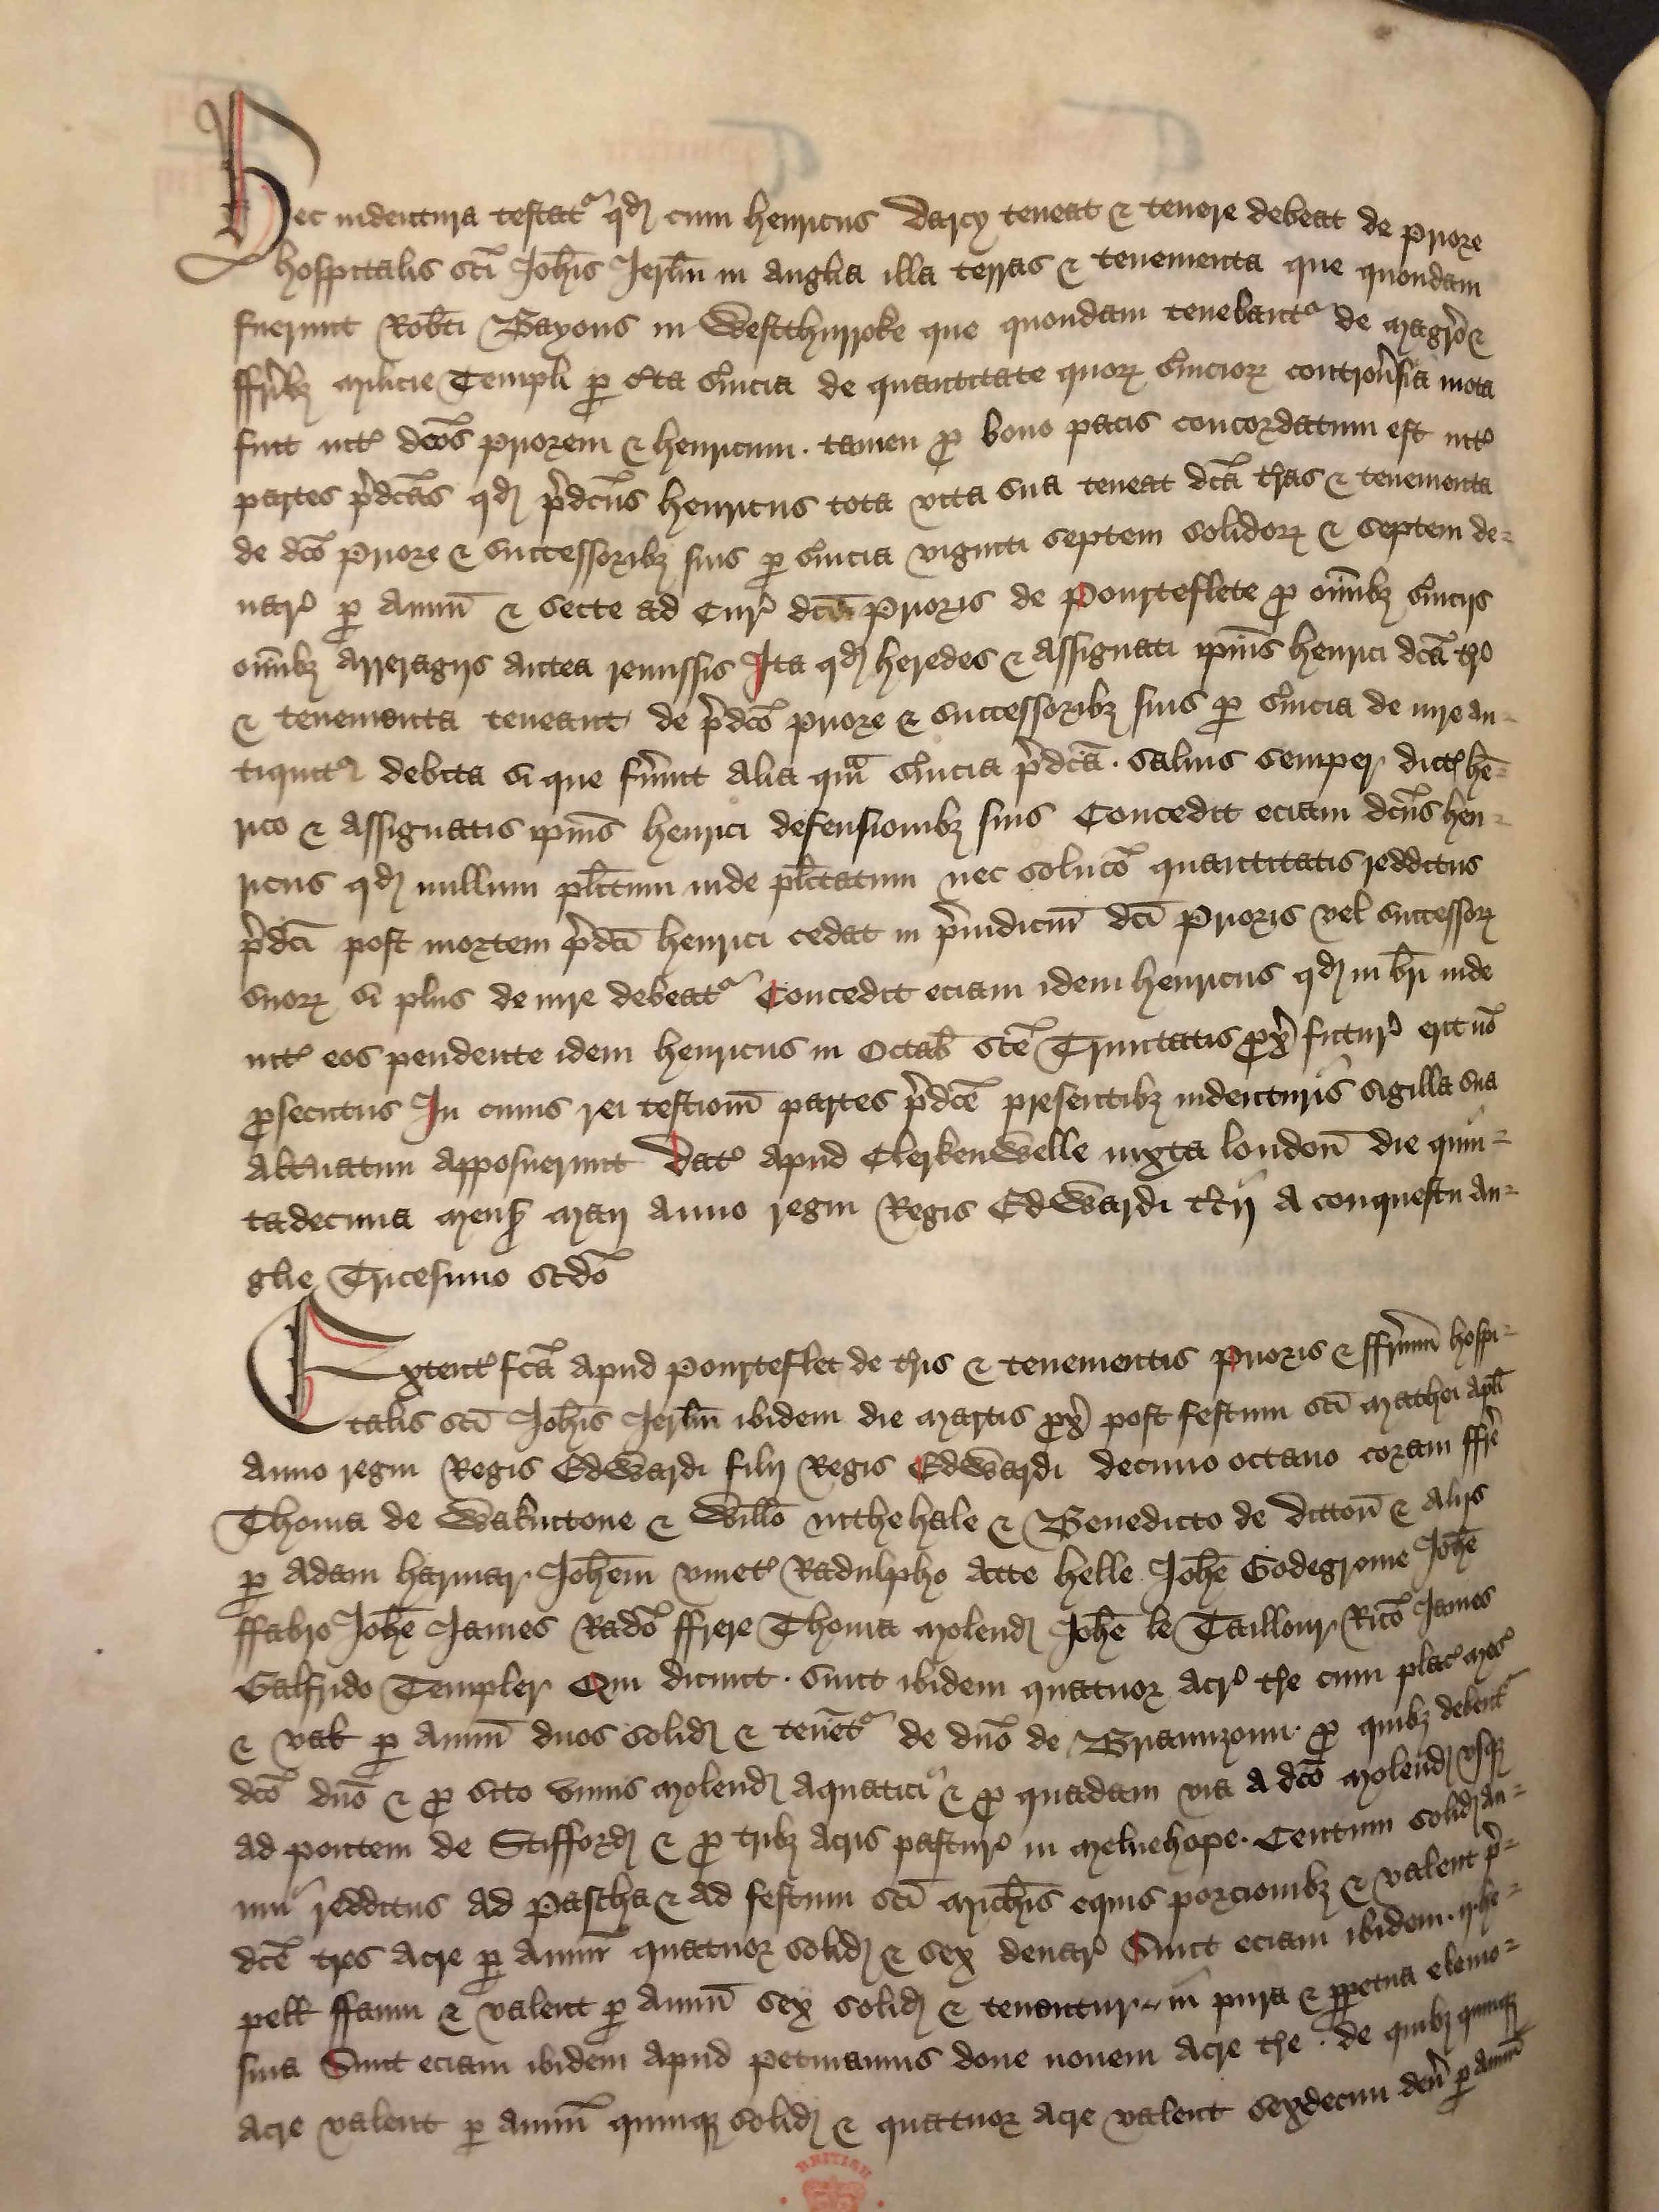 Hec indentura testat' qd cum Henricus Darcy teneat & tenere debeat de Priore
hospitalis sci Johis Jerlm in Anglia illa terras & tenementa que quondam
fuerunt Robti Bayous in Westthurroke que quondam tenebant' de magro &
ffribz milicie Templi p cta svicia de quantitate quorz sviciorz controvsia mota
fuit int' dcos Priorem & Henricum . tamen p bono pacis concordatum est int'
partes pdcas qd pdcus Henricus tota vita sua teneat dca tras & tenementa
de dco Priore & successoribz suis p svicia viginti septem solidorz & septem de-
nar' p annu & secte ad Cur' dci Prioris de Pourteflete p omibz sviciis
omibz arreragiis antea remissis Ita qd heredes & assignati ipius Henrici dca tr'
& tenementa teneant de pdco Priore & successoribz suis p svicia de iure an-
tiquit' debita si que fuint alia qm svicia pdca . salvis semper dict' hen-
rico & assignatis ipius Henrici defensionibz suis Concedit eciam dcus hen-
ricus qd nullum plitum inde plitatum nec soluco quantitatis redditus
pdci post mortem pdci Henrici cedat in piudiciu dci Prioris vel successorz
suorz si plus de iure debeat' Concedit eciam idem Henricus qd in bri inde
int' eos pendente idem Henricus in Octab sce Trinitatis px futur' erit no
psecutus In cuius rei testioiu partes pdce presentibz indenturis sigilla sua
altnatim apposuerunt Dat' apud Clerkenwelle iuxta london die quin-
tadecima mens maij anno regni Regis Edwardi tcij a conquestu an-
glie Tricesimo scdo
Extent' fca apud Pourteflet de tris & tenementis Prioris & ffrum hospi-
talis sci Johis Jerlm ibidem die martis px post festum sci Mathei apli
anno regni Regis Edwardi filij Regis Edwardi decimo octavo coram ffre
Thoma de Wakintone & Willo inthehale & Benedicto de Ditton & aliis
p Adam Harmar Johem vinet' Radulpho Atte helle Johe Godegrome Johe
ffabro Johe James Rado ffrere Thoma molend Johe le Taillour Rico James
Galfrido Templer Qui dicunt . sunt ibidem quatuor acr' tre cum plac' mes'
& val p annu duos solid & tenet' de dno de Braunzoun . p quibz debent'
dco dno & p situ unius molend aquatici & p quadam via a dco molend usqz
ad pontem de Stifford & p tribz acris pastur' in Meluehope . Centum solid an-
nui redditus ad Pascha & ad festum sci Michis equis porcionibz & valent p-
dce tres acre p annu quatuor solid & sex denar' Sunt eciam ibidem . ij . he-
pell ffanni & valent p annu sex solid & tenentur in pura & ppetua elemo-
sina Sunt eciam ibidem apud Petmannus done novem acre tre . de quibz quinqz
acre valent p annu quinqz solid & quatuor acre valent sexdecim den p annu
BRITISH